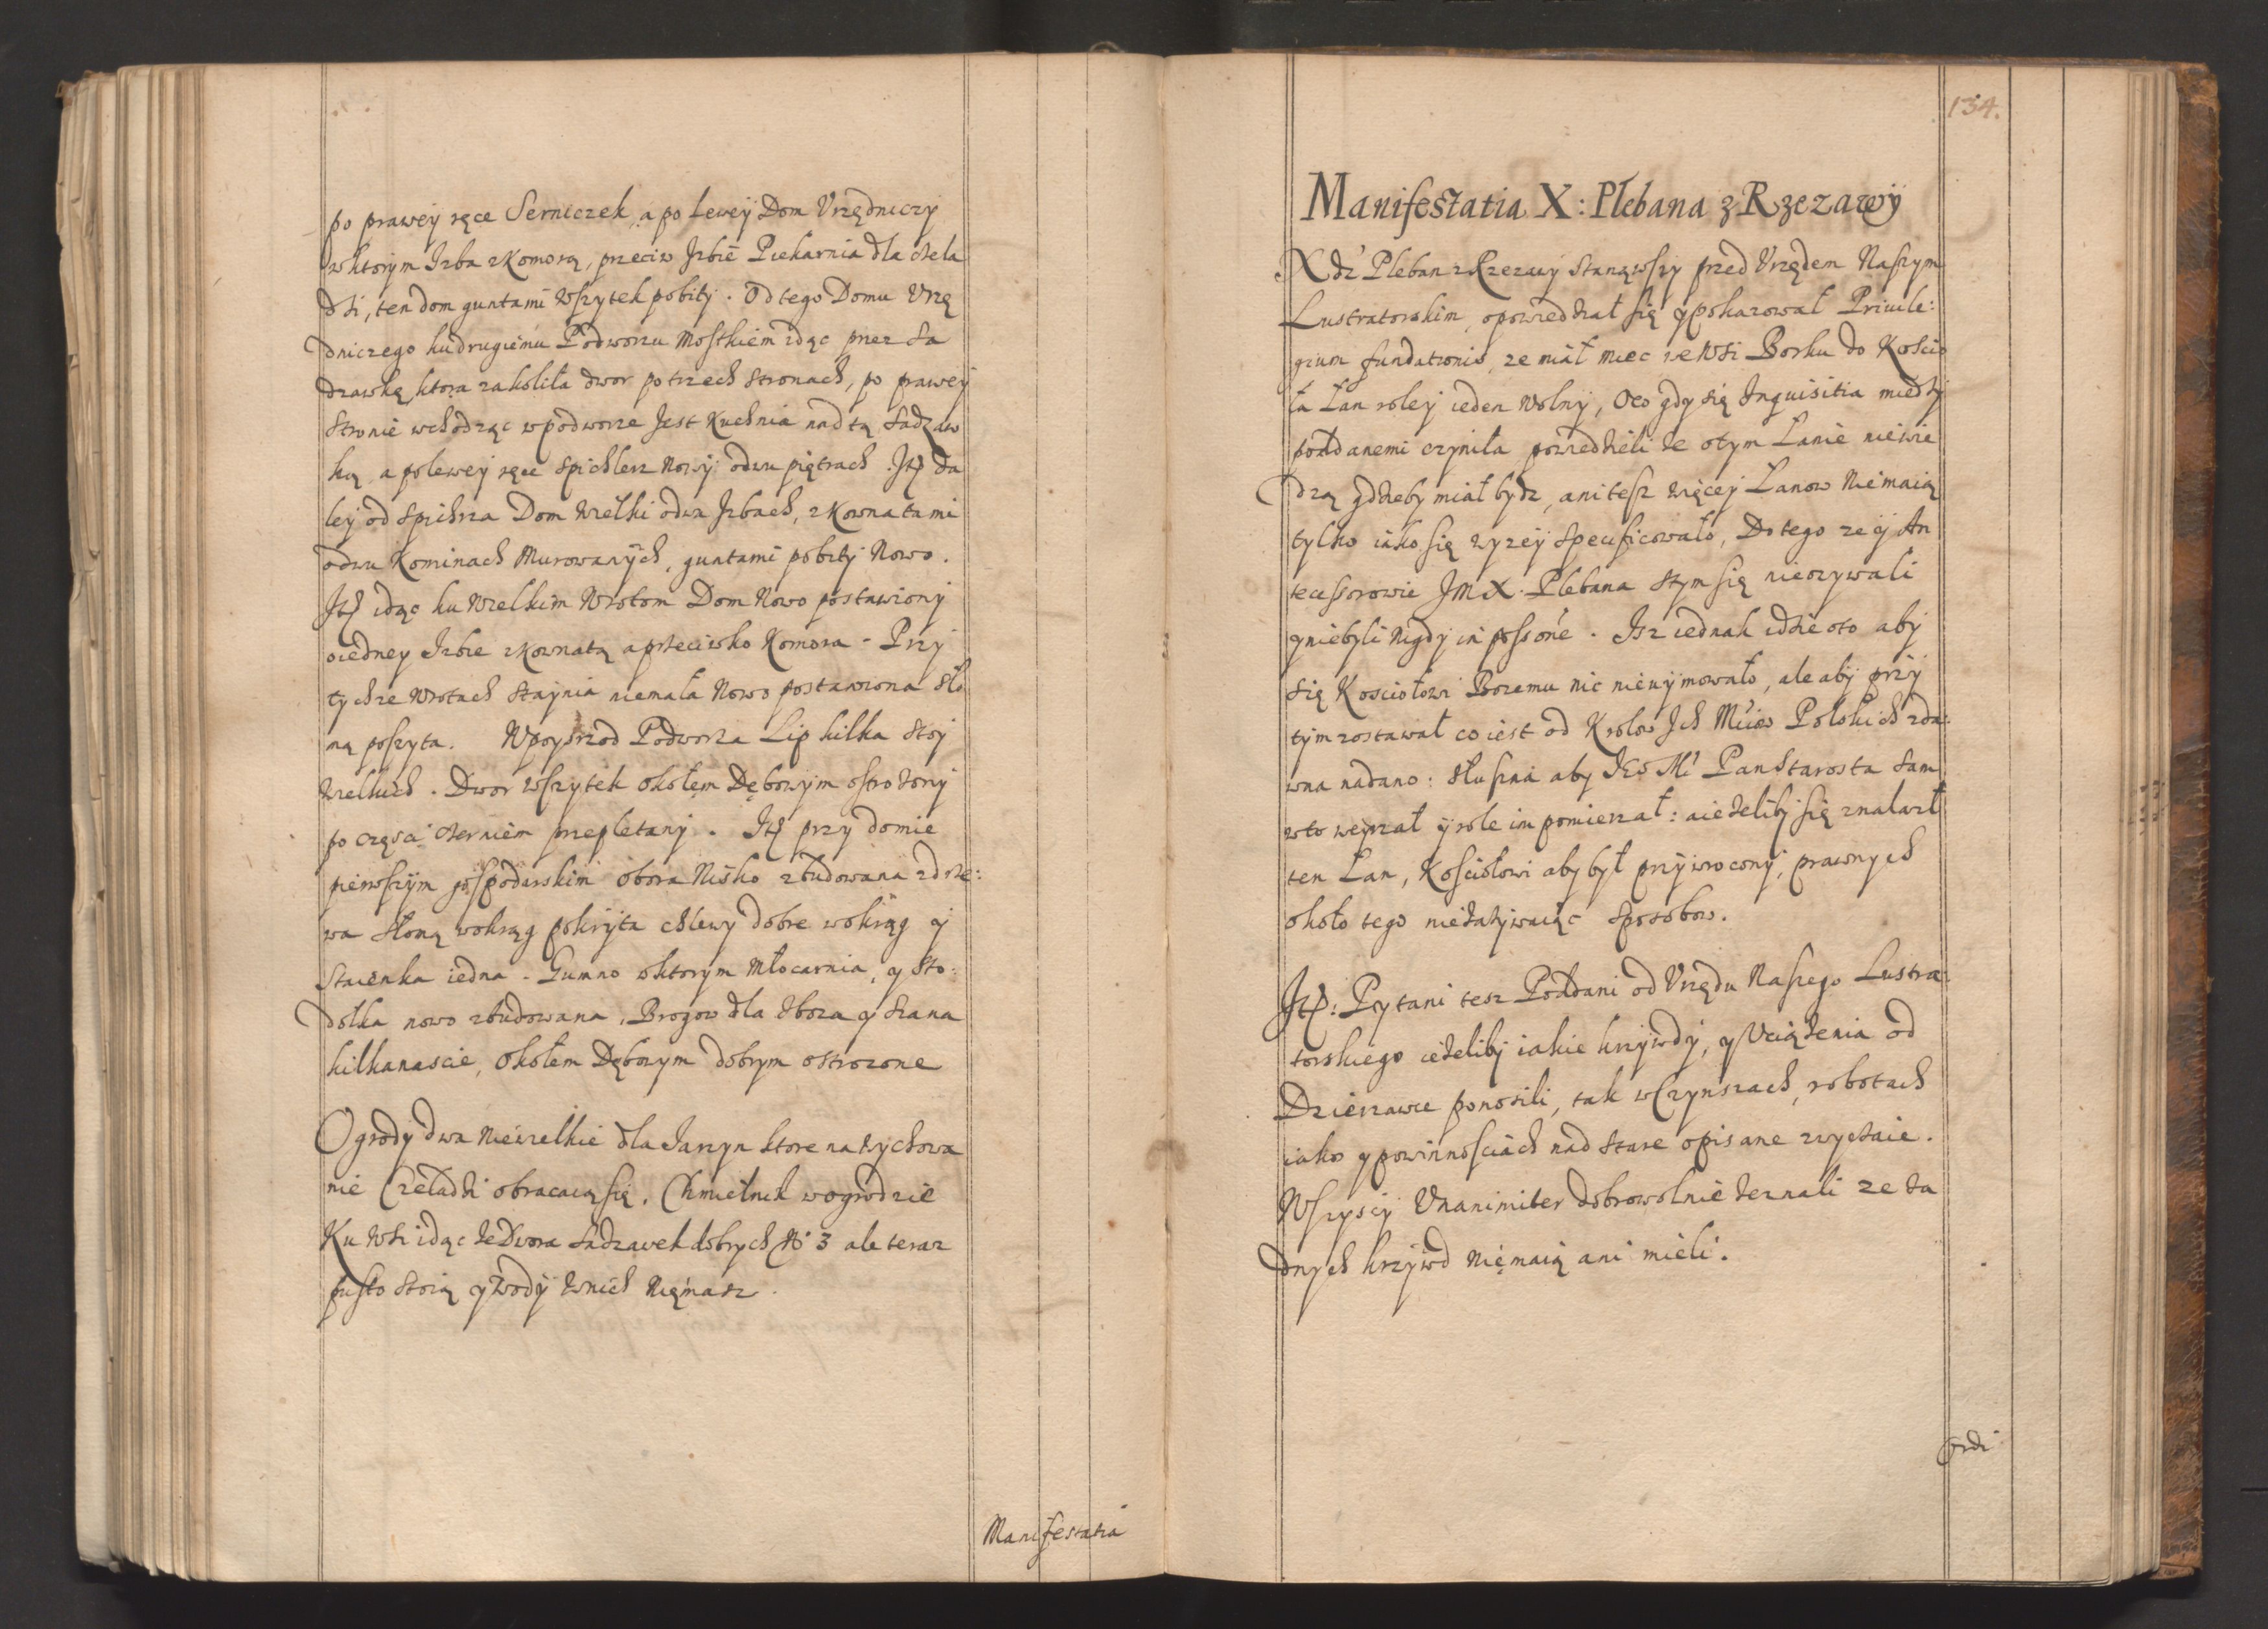 po prawey ręce Serniczek, a po lewey Dom Vrzędniczy
wktorym Izba zkomorą, przeciw Izbie Piekarnia dla czela
dzi, ten dom guntami wszytek pobity. Od tego Domu Vrzę
dniczego ku drugiemu Podworzu Mostkiem idąc przez Sa
dzawkę ktora zakoliła dwor po trzech stronach, po prawey
stronie wchodząc wpodworze Jest Kuchnia nad tą Sadzaw
ką, a polewey ręce Spichlerz Nowy odwu piętrach. Itp da
ley od Spichrza Dom wielki odwu Izbach, zkownatami
odwu Kominach Murowanych, guntami pobity Nowo.
Itp idąc ku wielkim wrotom Dom Nowo postawiony
oiedney Izbie zkownatą aprzeciwko Komora. Przy
tychze wrotach Staynia niemała Nowo postawiona sło
mą poszyta. Wpoysrzod Podworza Lip kilka stoy
wielkich. Dwor wszytek okołem Dębowym ostrożony
po częsci cierniem przepletany. Itp przy domie
pierwszym gospodarskim obora Nisko zbudowana zdrze:
wa słomą wokrąg pokryta chlewy dobre wokrąg y
Staienka iedna. Gumno wktorym Młocarnia, y sto:
dołka nowo zbudowana, Brogow dla zboza y siana
kilkanascie, okołem Dębowym dobrym ostrozone
Ogrody dwa niewielkie dla Jarzyn ktore na wychowa
nie Czeladzi obracaią się. Chmielnik wogrodzie
Ku wsi idąc ze Dwora sadzawek dobrych No 3 ale teraz
pusto stoią y wody wnich niemasz.
Manifestatia
134.
Manifestatia X: Plebana z Rzezawy
Xdz Pleban z Rzezawy stanąwszy przed Vrzędem Naszym
Lustratorskim, opowiedział się y pokazował Priuile:
gium fundationis, ze miał miec we wsi Borku do Koscio
ła Łan roley ieden wolny, Oco gdy się Inquisitia miedzy
poddanemi czyniła powiedzieli ze otym Łanie niewie
dzą gdzieby miał bydz, ani tesz więcey Łanow Niemaią
tylko iako się wyzey specificowało, Do tego ze y An
tecessorowie JMX. Plebana stym się nieozywali
y niebyli nigdy in possone. Isz iednak idzie oto aby
się Kosciołowi Bozemu nic nieuymowało, ale aby przy
tym zostawał co iest od Krolow Ich Mciow Polskich zda:
wna nadano: słuszna aby JEo Mc Pan Starosta sam
wto weyrzał y role im pomierzał: aiezeliby się znalazł
ten Łan, Kosciołowi aby był przywrocony, prawnych
około tego niezazywaiąc sposobow.
Itp: Pytani tesz Poddani od Vrzędu Naszego Lustra:
torskiego iezeliby iakie krzywdy, y Vciązenia od
Dzierzawce ponosili, tak w Czynszach, robotach
iako y powinnosciach nad stare opisane zwyczaie.
Wszyscy Vnanimiter dobrowolnie zeznali ze za
dnych krzywd niemaią ani mieli.